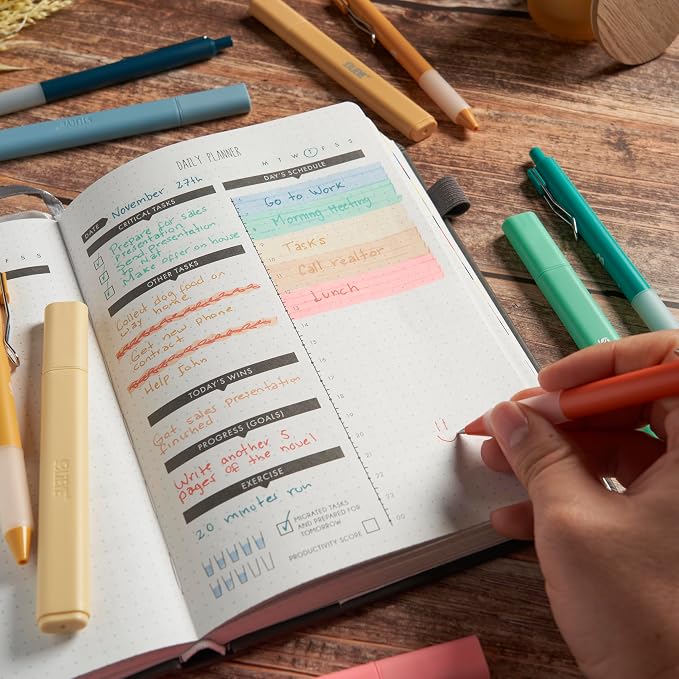 S S
DAILY PLANNER
M T W T F S S
DATE
November 27th
CRITICAL TASKS
Prepare for sales
presentation
Send presentation
to Nat
Make offer on house
OTHER TASKS
Collect dog food on
way home
Get new phone
contract
Help John
TODAY'S WINS
Got sales presentation
finished
PROGRESS (GOALS)
Write another 5
pages of the novel
EXERCISE
20 minutes run
MIGRATED TASKS
AND PREPARED FOR
TOMORROW
PRODUCTIVITY SCORE
DAY'S SCHEDULE
Go to Work
Morning Meeting
9
Tasks
Call realtor
Lunch
13
14
15
16
17
18
19
20
21
22
23
00